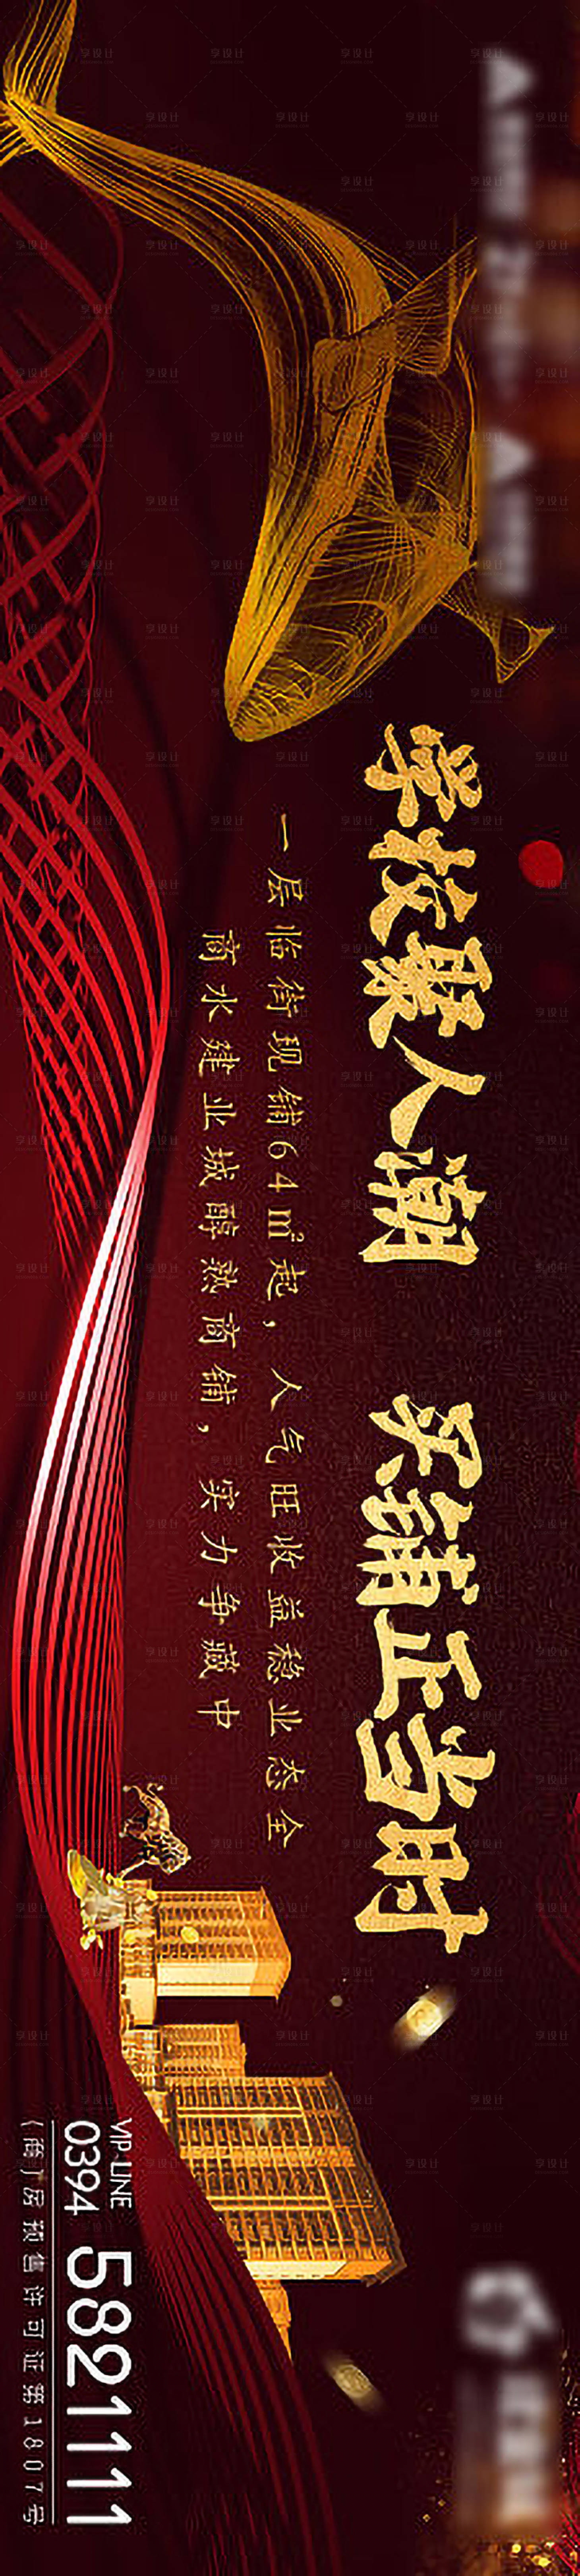 学校聚人潮 买铺正当时
一层临街现铺64㎡起，人气旺收益稳业态全
商水建业城醇熟商铺，实力争藏中
VIP LINE
0394 5821111
(商)房预售许可证第1807号
享设计